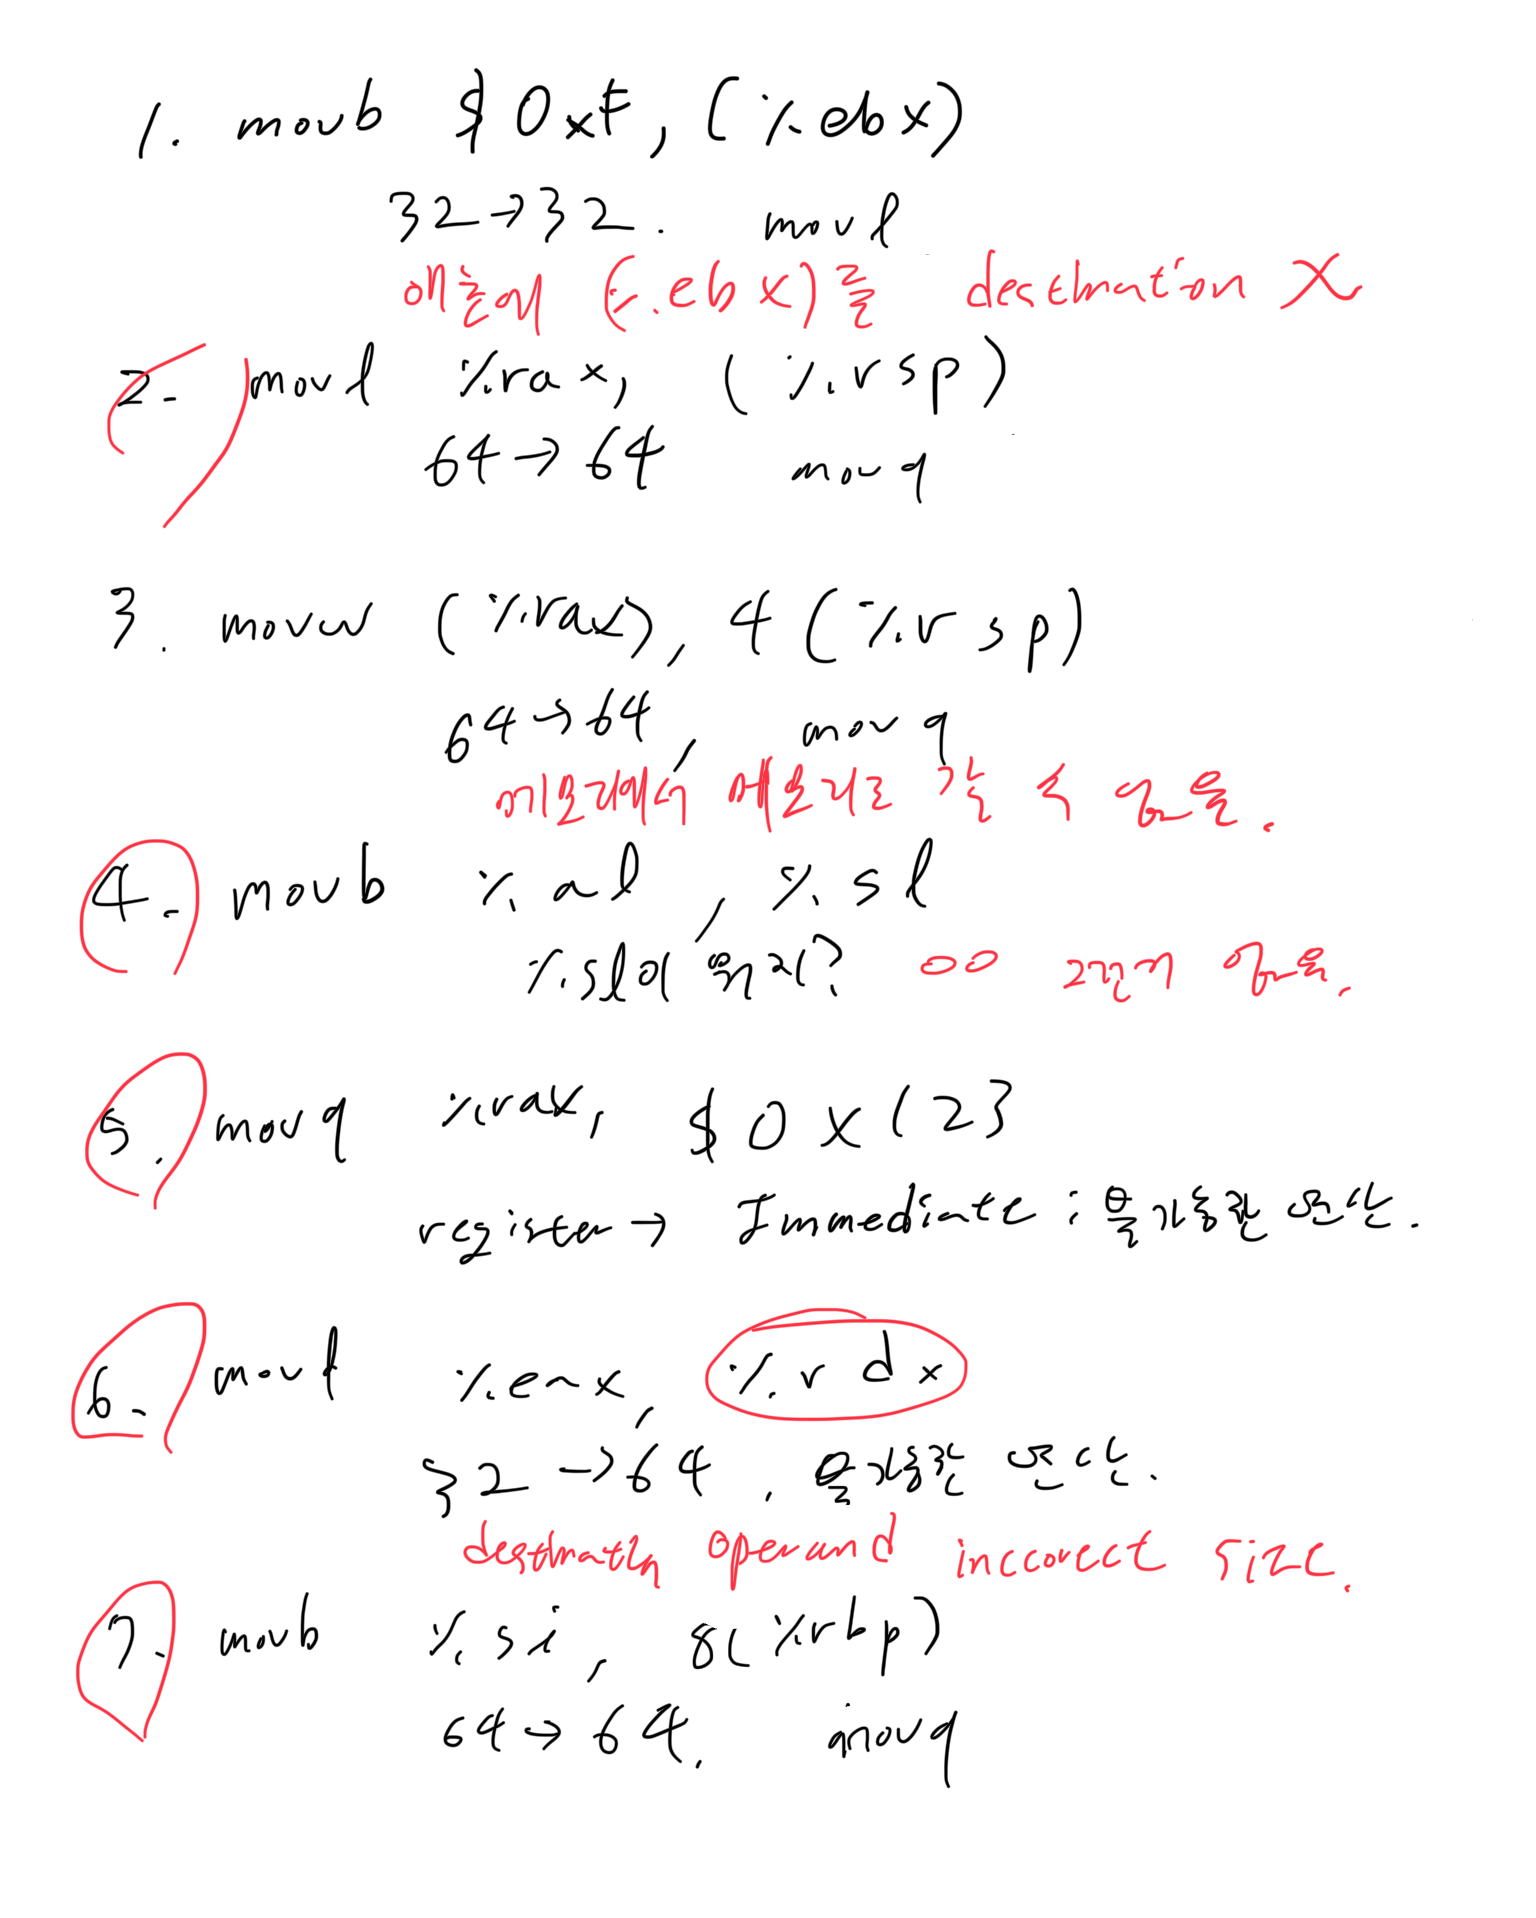 1. movb $0xF, (%ebx)
32→32. movl
애초에 (%.ebx)를 destination X
2. movl %rax, (%rsp)
64→64 movq
3. movw (%rax), 4(%rsp)
64→64, movq
메모리에서 메모리로 갈 수 없음.
4. movb %al, %sl
%sl이 뭐지? 그런거 없음.
5. movq %rax, $0x123
register → Immediate : 불가능한 연산.
6. movl %eax, %rdx
32→64, 불가능한 연산.
destination operand inccorect size.
7. movb %si, 8(%rbp)
64→64. movq